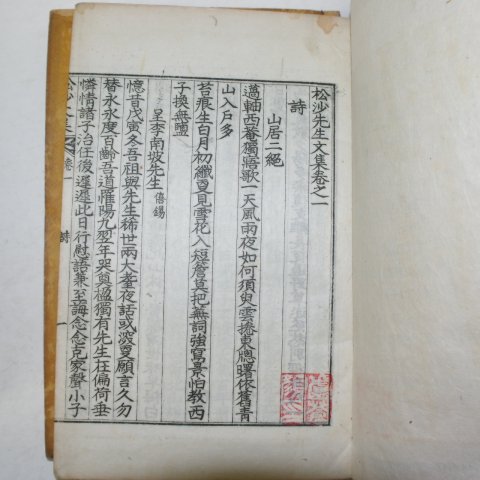 松沙先生文集卷之一
詩
山居二絕
邁軸西菴獨寤歌一天風雨夜如何須臾雲捲東牕曙依舊靑
山入戶多
苔痕生白月初纖更見雪花入短簷莫把蕪詞強寫景怕教西
子換無鹽
呈李南坡先生 僖錫
憶昔戊寅冬吾祖與先生稀世兩大耋夜話或深更願言久勿
替永永度百齡吾道罹陽九翌年哭奠楹獨有先生在偏荷垂
憐情諸子治任後遲遲此日行慰語兼至誨念念克家聲小子
松沙文集 卷一 詩 一